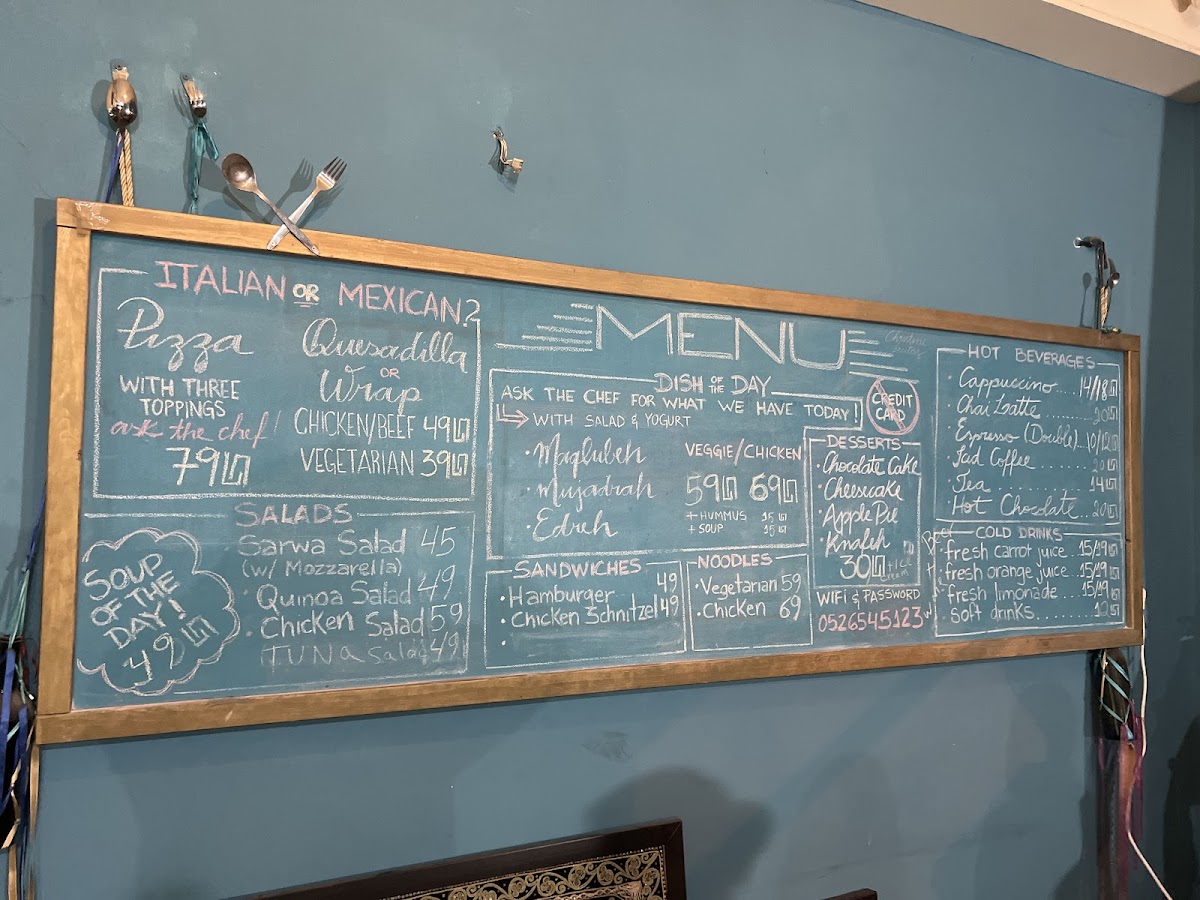 ITALIAN OR MEXICAN?
Pizza
WITH THREE
TOPPINGS
ask the chef!
79₪
Quesadilla
OR
Wrap
CHICKEN/BEEF 49₪
VEGETARIAN 39₪
SOUP
OF THE
DAY!
49₪
SALADS
Sarwa Salad 45
(w/ Mozzarella)
· Quinoa Salad 49
· Chicken Salad 59
TUNa Salad 49
MENU
DISH OF THE DAY
ASK THE CHEF FOR WHAT WE HAVE TODAY!
WITH SALAD & YOGURT
· Maglubeh
· Mujadrah
· Edreh
VEGGIE/CHICKEN
59₪ 69₪
+ HUMMUS 15₪
+ SOUP 15₪
SANDWICHES
· Hamburger 49
· Chicken Schnitzel 49
NOODLES
· Vegetarian 59
· Chicken 69
CREDIT
CARD
DESSERTS
· Chocolate Cake
· Cheesecake
· Apple Pie
· Knafeh
30₪
WIFI & PASSWORD
0526545123
HOT BEVERAGES
· Cappuccino... 14/18₪
· Chai Latte........ 20₪
· Espresso (Double)... 10/12₪
· Iced Coffee....... 20₪
· Tea............ 14₪
· Hot Chocolate.. 20₪
COLD DRINKS
· fresh carrot juice.. 15/19₪
· fresh orange juice.. 15/19₪
· fresh limonade.... 15/19₪
· Soft drinks........ 10₪